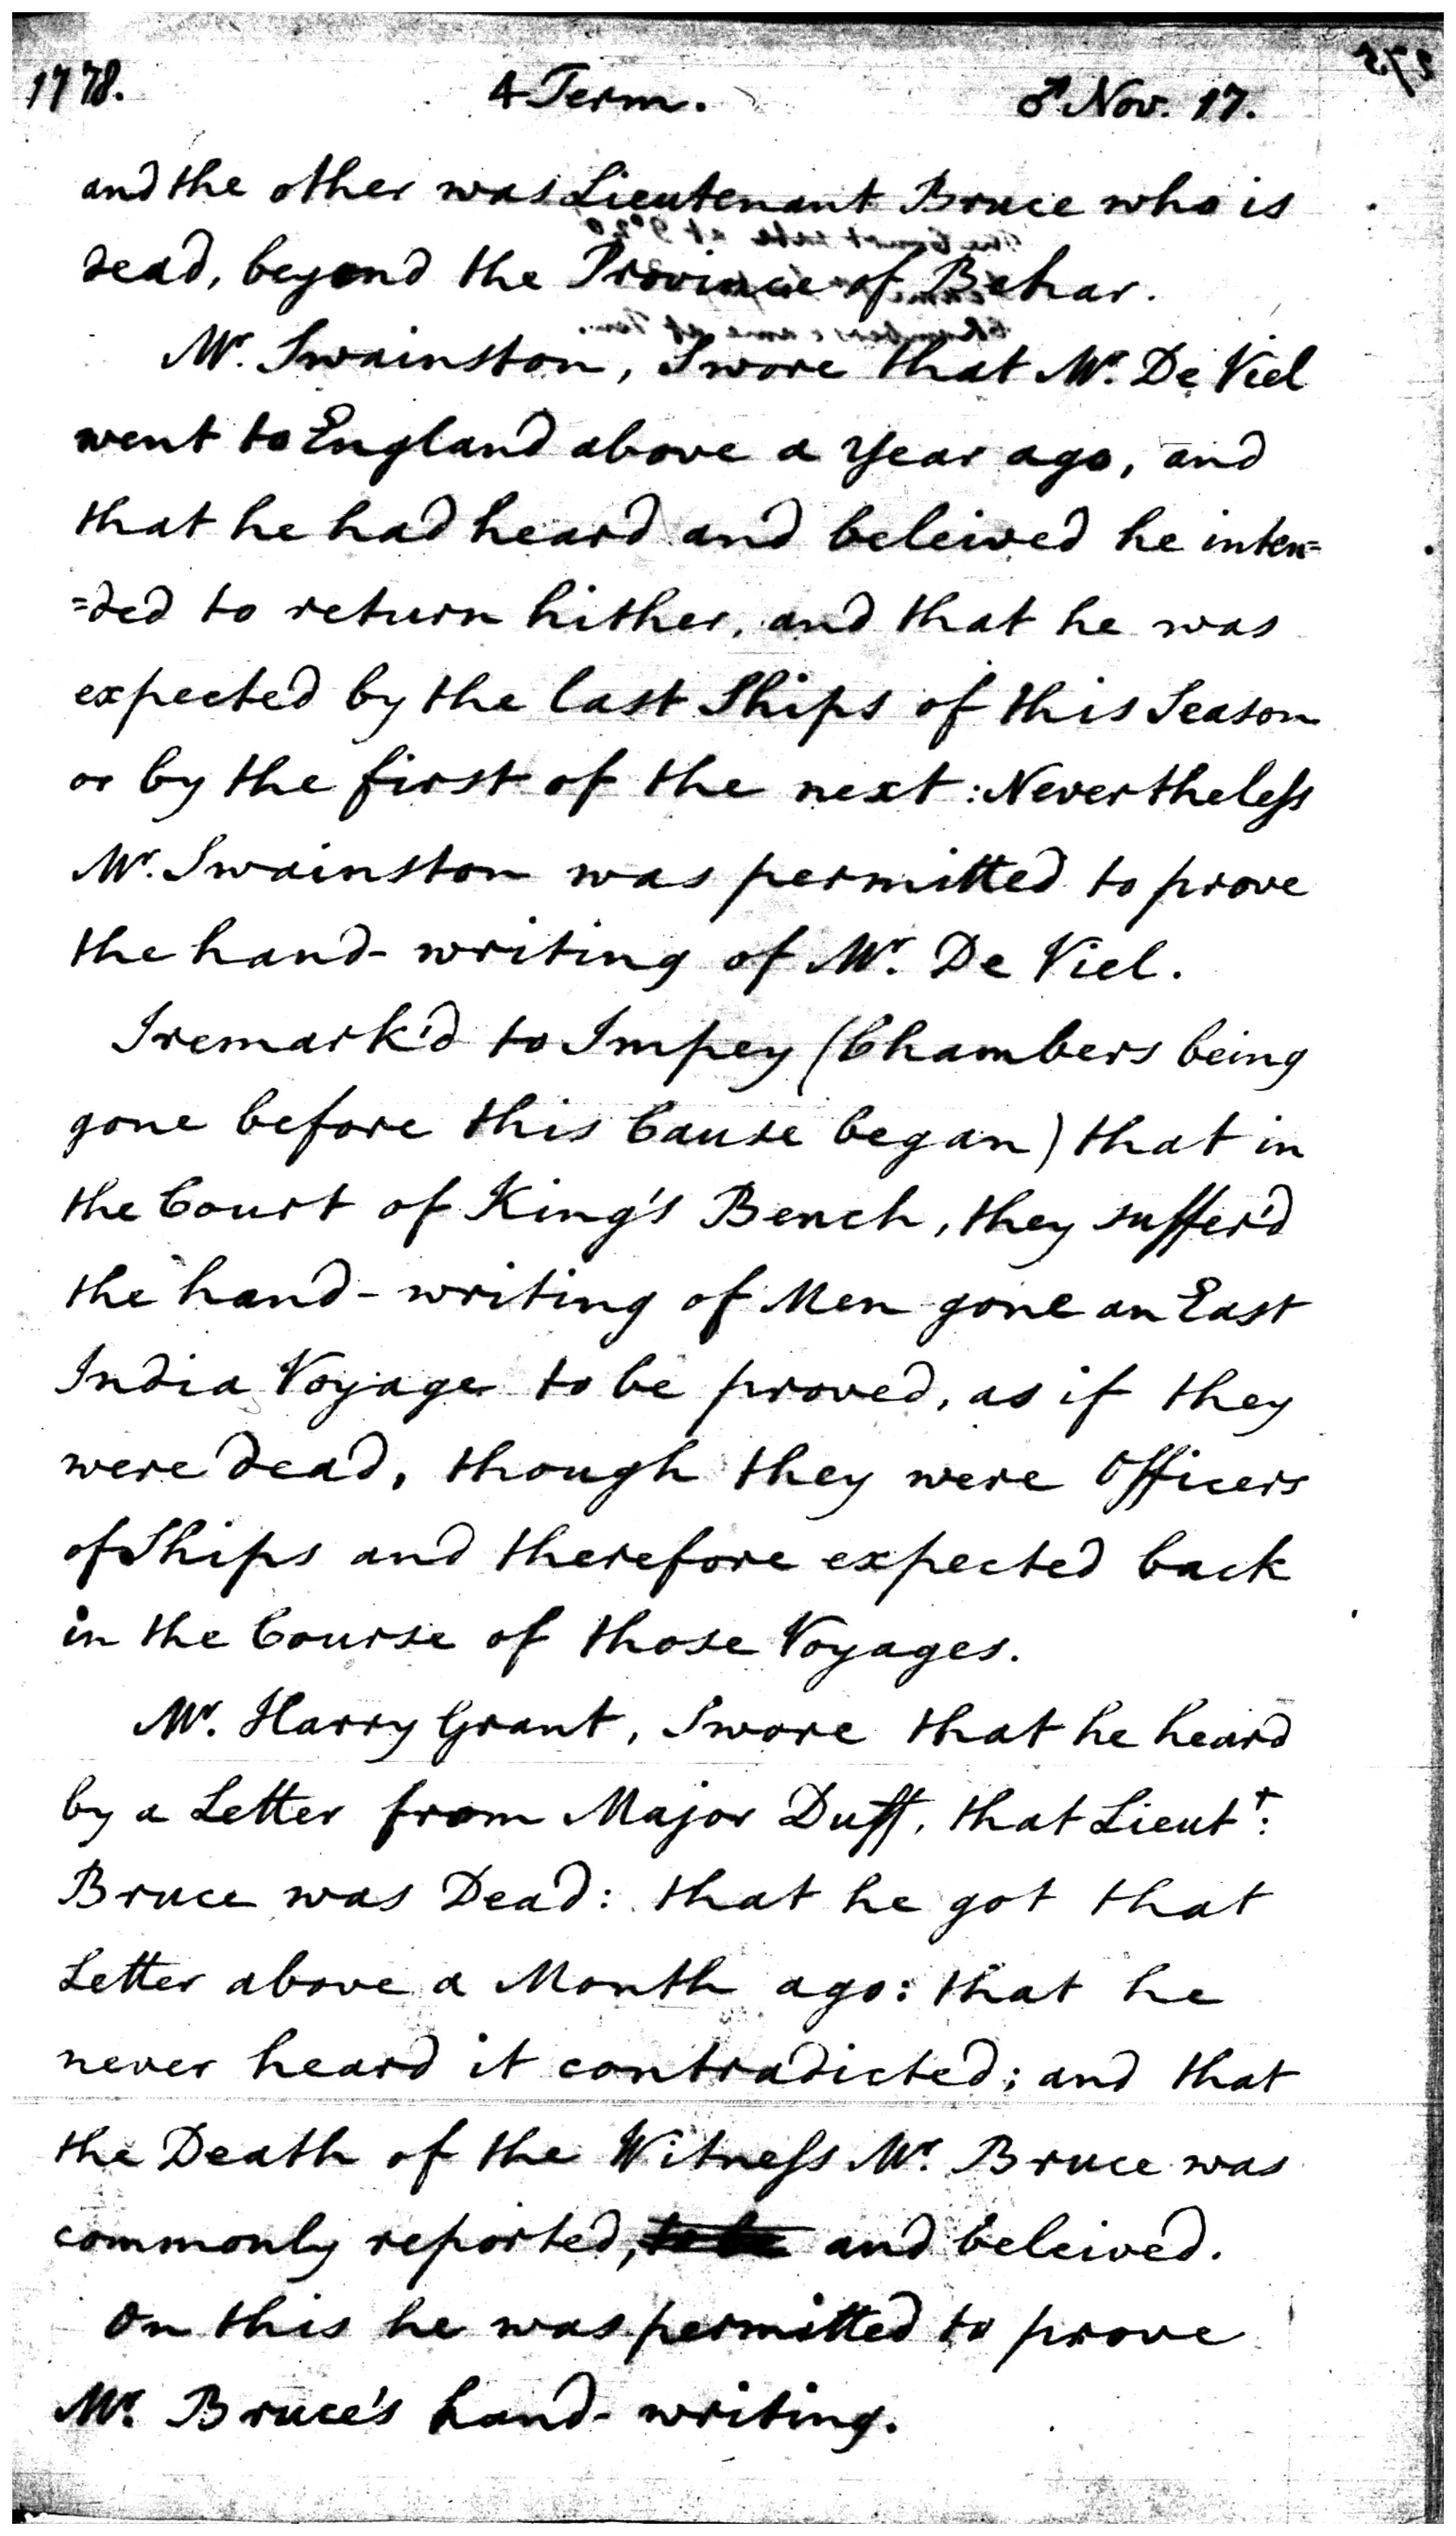 1778. 4 Term. ♂ Nov. 17.
and the other was Lieutenant Bruce who is
dead, beyond the Province of Behar.
Mr. Swainston, Swore that Mr. De Viel
went to England above a Year ago, and
that he had heard and beleived he inten=
=ded to return hither, and that he was
expected by the last Ships of this Season
or by the first of the next: Nevertheless
Mr. Swainston was permitted to prove
the hand-writing of Mr. De Viel.
I remark'd to Impey (Chambers being
gone before this Cause began) that in
the Court of King's Bench, they suffer'd
the hand-writing of Men gone an East
India Voyage to be proved, as if they
were dead, though they were Officers
of Ships and therefore expected back
in the Course of those Voyages.
Mr. Harry Grant, Swore that he heard
by a Letter from Major Duff, that Lieut.t:
Bruce was Dead: that he got that
Letter above a Month ago: that he
never heard it contradicted; and that
the Death of the Witness Mr. Bruce was
commonly reported, and beleived.
On this he was permitted to prove
Mr. Bruce's hand-writing.